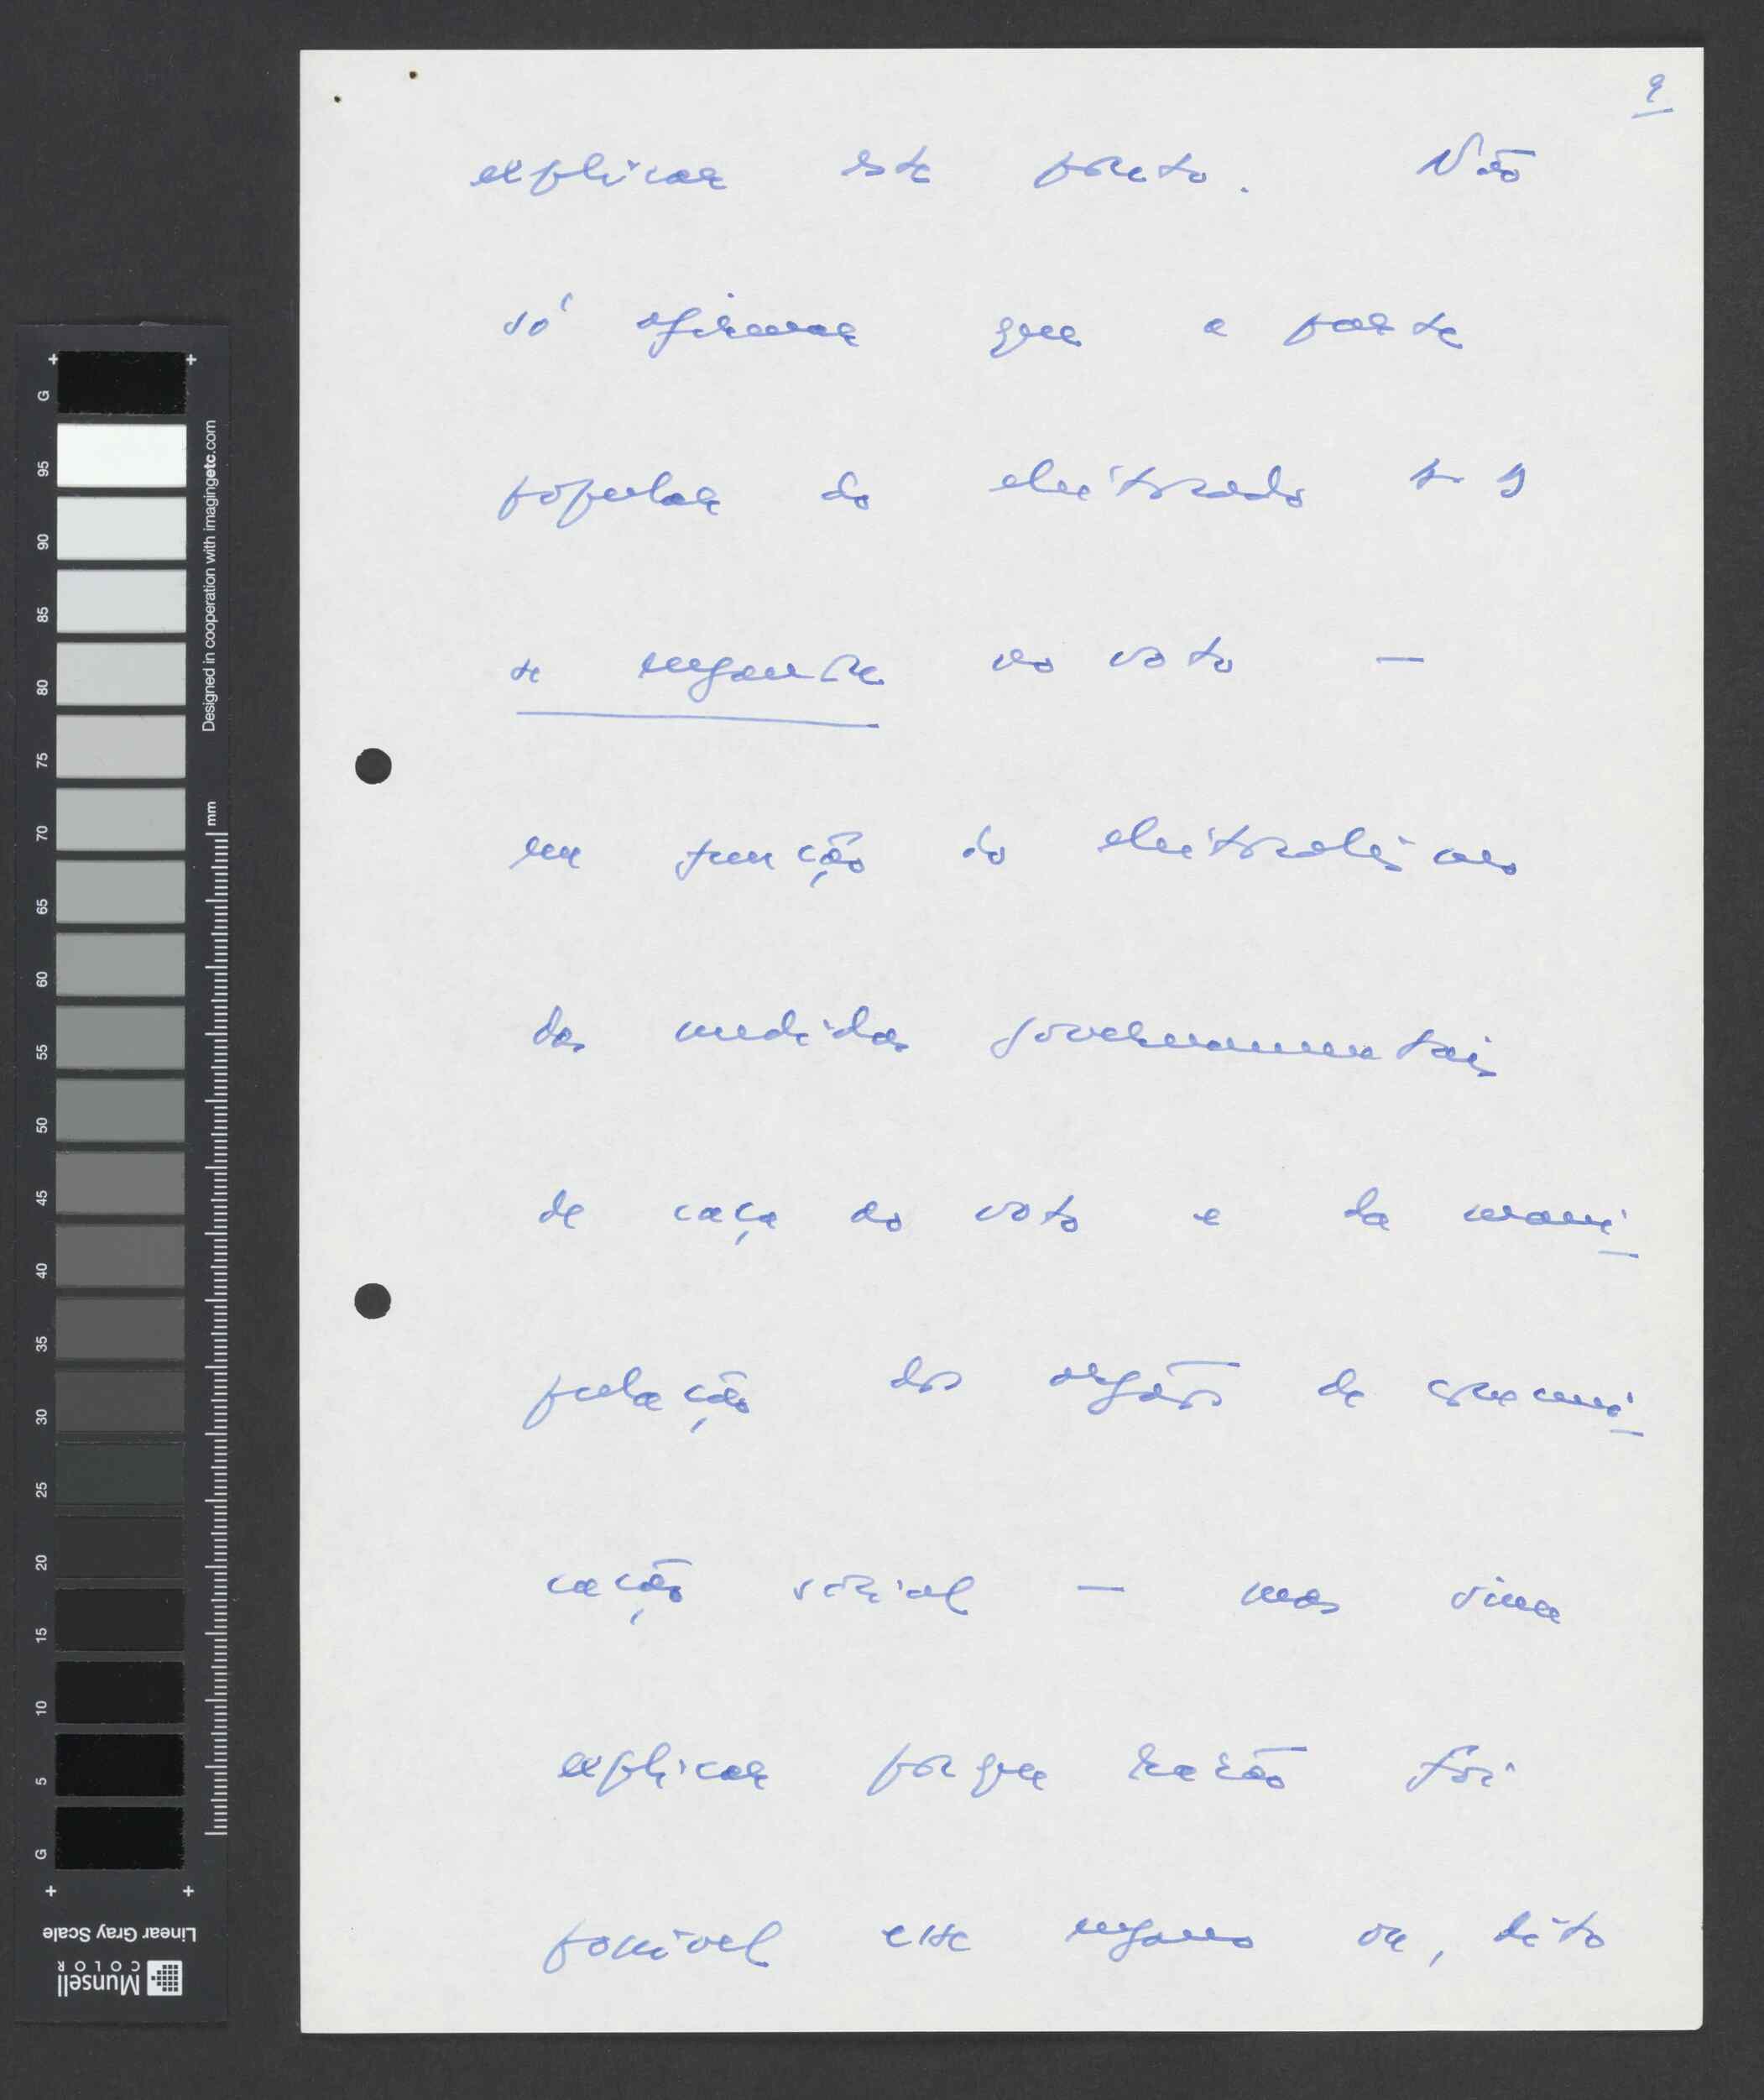 9
explicar este ponto. Não
só afirmar que a parte
popular do eleitorado
se enganou no voto —
em função do eleitoralismo
das medidas governamentais
de caça ao voto e da mani-
pulação dos orgãos de comuni-
cação social — mas sim
explicar porque razão foi
possivel esse engano ou, dito
G 95 90 85 80 75 70 65 60 55 50 45 40 35 30 25 20 15 10 5 G
Designed in cooperation with imagingetc.com
mm
Linear Gray Scale
Munsell
COLOR